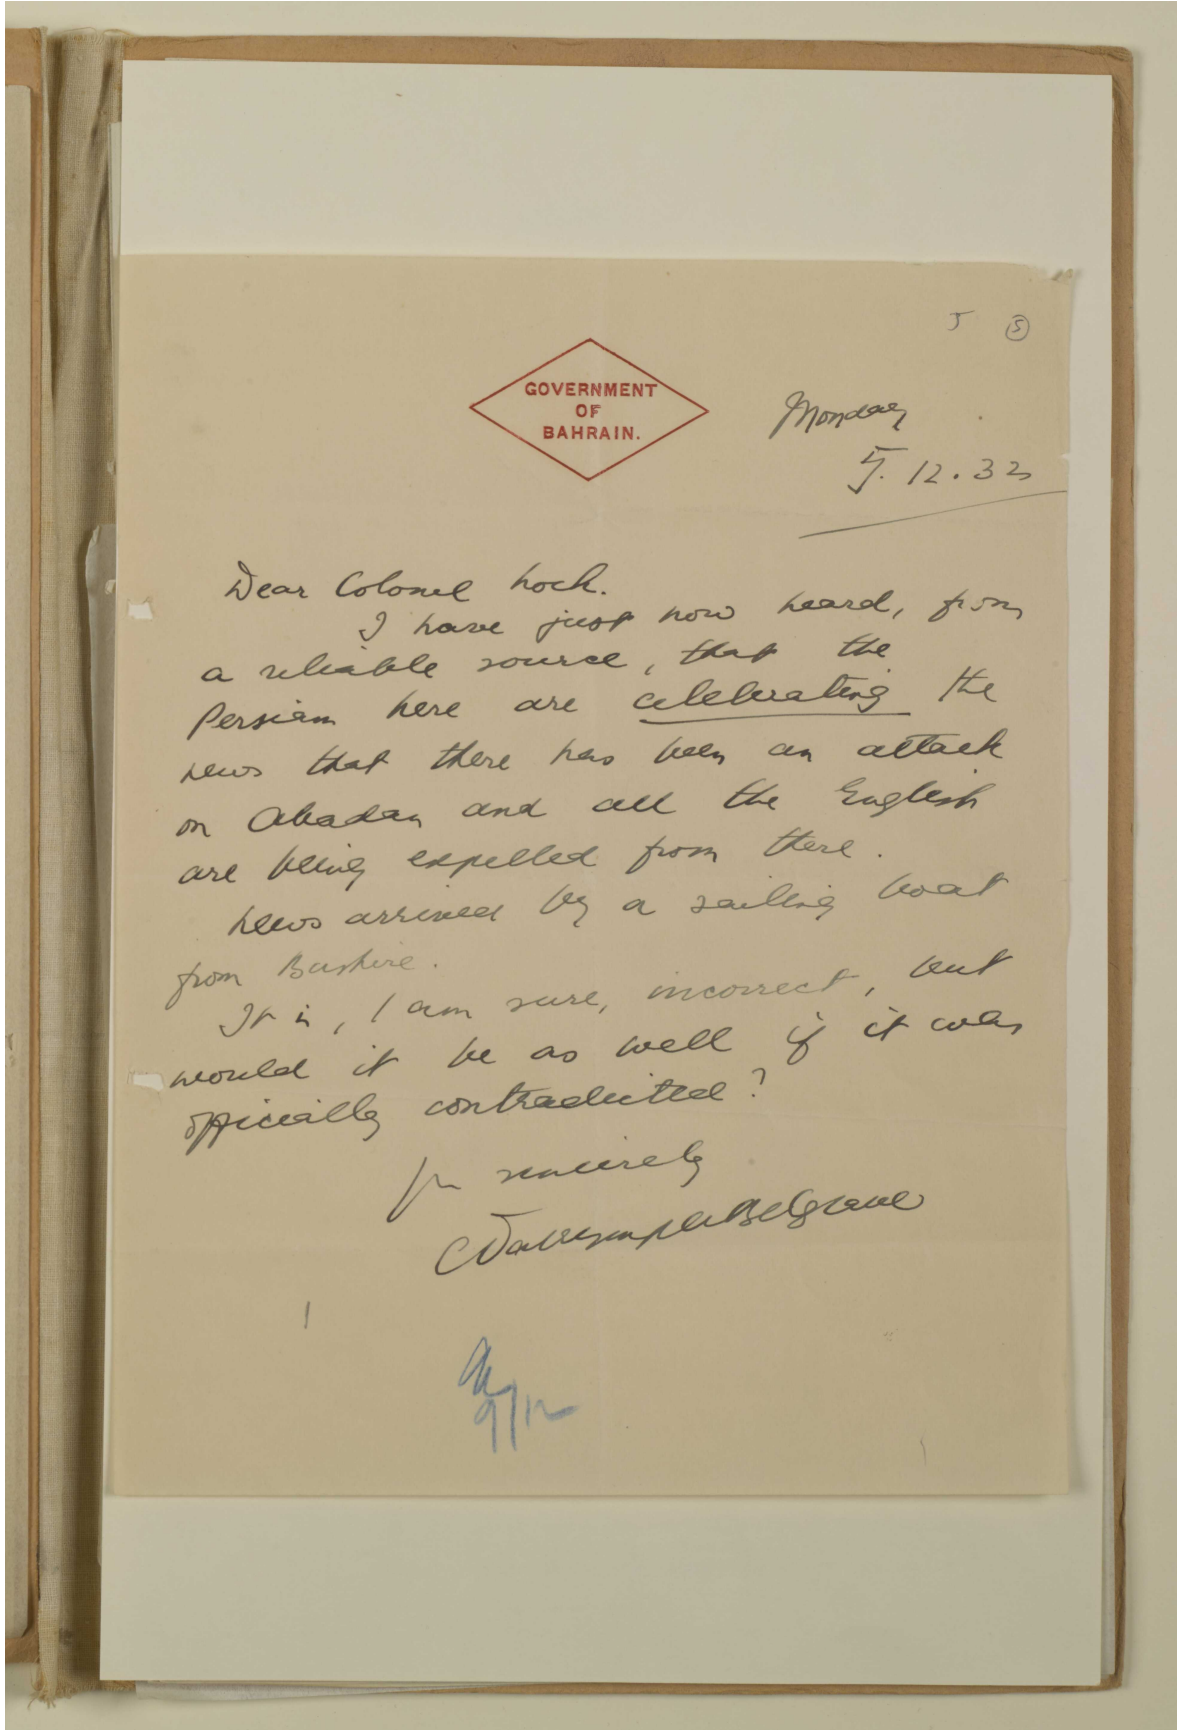 5 5
GOVERNMENT
OF
BAHRAIN.
Monday
5.12.32
Dear Colonel Loch.
I have just now heard, from
a reliable source, that the
Persians here are celebrating the
news that there has been an attack
on Abadan and all the English
are being expelled from there.
News arrived by a sailing boat
from Bushire.
It is, I am sure, incorrect, but
would it be as well if it was
officially contradicted?
Yrs sincerely
CDalrympleBelgrave
9/12